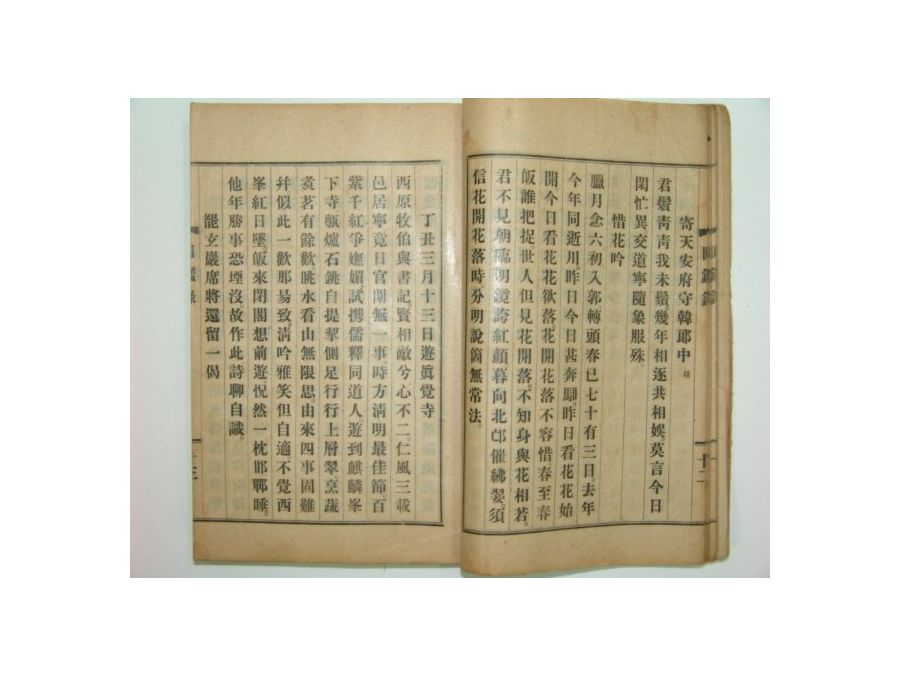 寄天安府守韓郎中
君鬢靑靑我未鬚幾年相逐共相娛莫言今日
閑忙異交道寧隨象服殊
惜花吟
臘月念六初入郭轉頭春已七十有三日去年
今年同逝川昨日今日甚奔馹昨日看花花始
開今日看花花欲落花開花落不容惜春至春
皈誰把捉世人但見花開落不知身與花相若
君不見朝臨明鏡誇紅顏暮向北邙催紼翣須
信花開花落時分明說箇無常法
十二
丁丑三月十三日遊眞覺寺
西原牧伯與書記賢相敵兮心不二仁風三載
邑居寧竟日官閑無一事時方淸明最佳節百
紫千紅爭嫵媚試携儒釋同道人遊到麒麟峯
下寺甁爐石銚自提挈側足行行上層翠烹蔬
煑茗有餘歡眺水看山無限思由來四事固難
幷似此一歡那易致淸吟雅笑但自適不覺西
峯紅日墜皈來閉閤想前遊怳然一枕邯鄲睡
他年勝事恐堙沒故作此詩聊自識
罷玄巖席將還留一偈